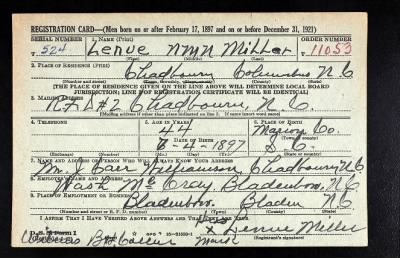 REGISTRATION CARD—(Men born on or after February 17, 1897 and on or before December 31, 1921)
SERIAL NUMBER 1. NAME (Print) ORDER NUMBER
524 Lenue NMN Miller 11053
(First) (Middle) (Last)
2. PLACE OF RESIDENCE (Print)
Chadbourn Columbus N.C.
(Number and street) (Town, township, village, or city) (County) (State)
[THE PLACE OF RESIDENCE GIVEN ON THE LINE ABOVE WILL DETERMINE LOCAL BOARD
JURISDICTION; LINE 2 OF REGISTRATION CERTIFICATE WILL BE IDENTICAL]
3. MAILING ADDRESS
R.F.D#2 Chadbourn, N.C.
(Mailing address if other than place indicated on line 2. If same insert word same)
4. TELEPHONE 5. AGE IN YEARS 6. PLACE OF BIRTH
44 Marion Co.
DATE OF BIRTH (Town or county)
6-4-1897 S.C.
(Exchange) (Number) (Mo.) (Day) (Yr.) (State or country)
7. NAME AND ADDRESS OF PERSON WHO WILL ALWAYS KNOW YOUR ADDRESS
Williamson Chadbourn N.C.
8. EMPLOYER'S NAME AND ADDRESS
Wash Mc Bladenboro, N.C.
9. PLACE OF EMPLOYMENT OR BUSINESS
Bladenboro. Bladen N.C.
(Number and street or R. F. D. number) (Town) (County) (State)
I AFFIRM THAT I HAVE VERIFIED ABOVE ANSWERS AND THAT THEY ARE TRUE.
his
X Lenue Miller
D. S. S. Form 1 mark (Registrant's signature)